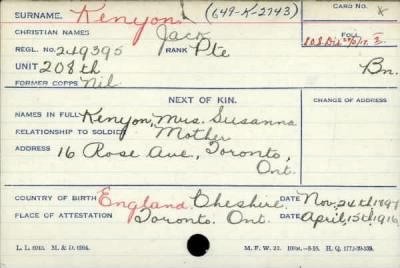 SURNAME. Kenyon (649-K-2743) CARD NO.
CHRISTIAN NAMES Jack FOLL.
REGL. NO. 249395 RANK Pte
UNIT 208th Bn.
FORMER CORPS Nil
NEXT OF KIN. CHANGE OF ADDRESS
NAMES IN FULL Kenyon, Mrs. Susanna
RELATIONSHIP TO SOLDIER Mother
ADDRESS 16 Rose Ave., Toronto,
Ont.
COUNTRY OF BIRTH England Cheshire DATE Nov. 24th 1897
PLACE OF ATTESTATION Toronto. Ont. DATE April, 15th, 1916
M. F. W. 22.